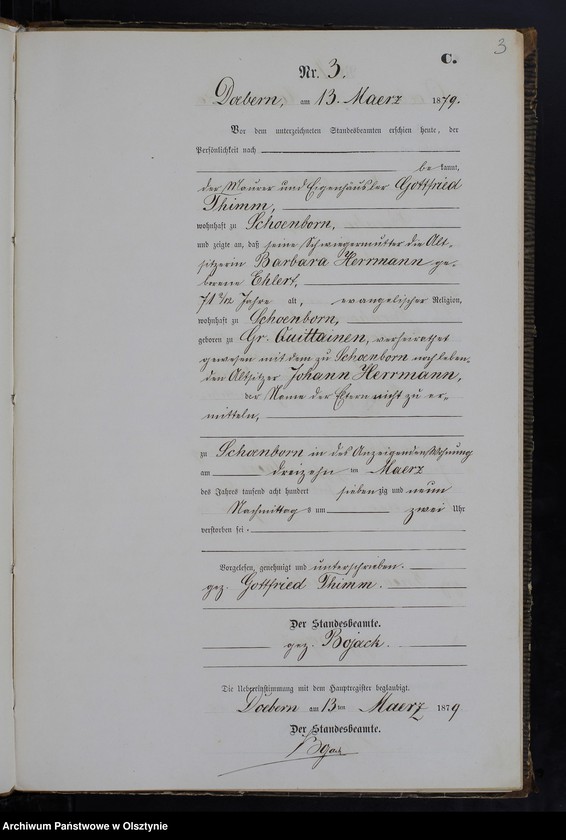 3
C.
Nr. 3.
Doebern, am 13. Maerz 1879.
Vor dem unterzeichneten Standesbeamten erschien heute, der
Persönlichkeit nach
bekannt,
der Maurer und Eigenhäusler Gottfried
Thimm,
wohnhaft zu Schoenborn,
und zeigte an, daß seine Schwiegermutter die Alt-
sitzerin Barbara Herrmann ge-
borene Ehlert,
71 3/12 Jahre alt, evangelischer Religion,
wohnhaft zu Schoenborn,
geboren zu Gr. Quittainen, verheirathet
gewesen mit dem zu Schoenborn noch leben-
den Altsitzer Johann Herrmann,
der Name der Eltern nicht zu er-
mitteln,
zu Schoenborn in des Anzeigenden Wohnung
am dreizehn ten Maerz
des Jahres tausend acht hundert siebenzig und neun
Nachmittags um zwei Uhr
verstorben sei.
Vorgelesen, genehmigt und unterschrieben.
gez. Gottfried Thimm.
Der Standesbeamte.
gez. Bojack.
Die Uebereinstimmung mit dem Hauptregister beglaubigt.
Doebern am 13ten Maerz 1879
Der Standesbeamte.
Bojack
Archiwum Państwowe w Olsztynie